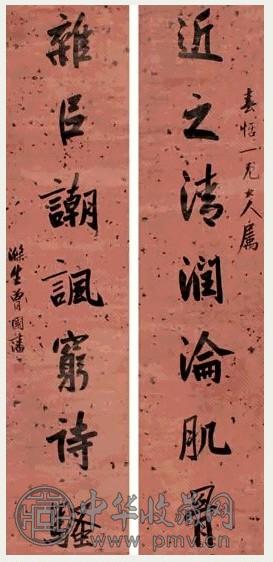 近之清潤淪肌骨
春恬一兄大人属
雜㠯謿諷窮詩騷
滌生曾國藩
中华收藏网
www.pmv.cn